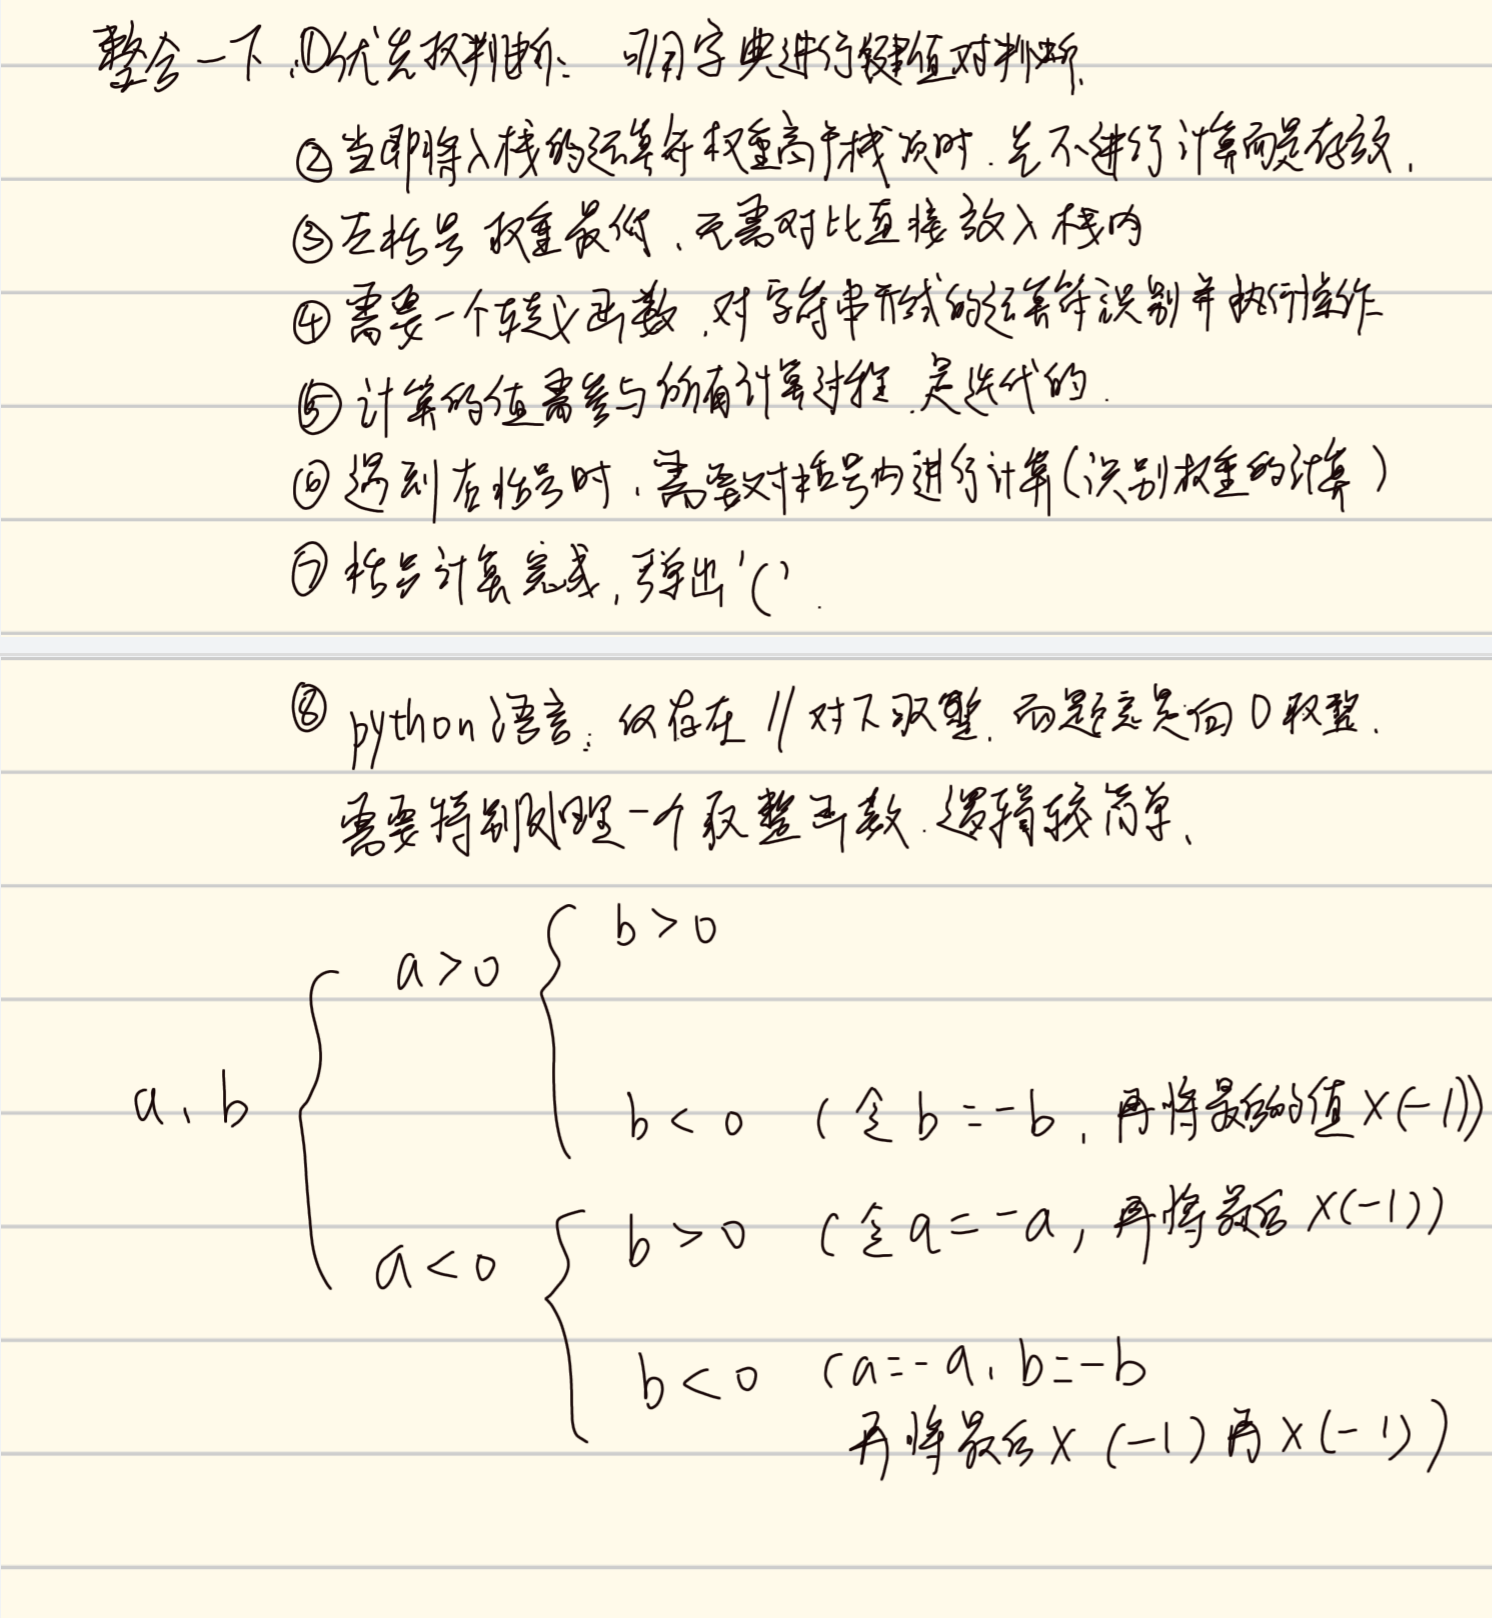 整合一下.①优先权判断: 可用字典进行键值对判断.
②当即将入栈的运算符权重高于栈顶时.先不进行计算而是存放.
③左括号权重最低、无需对比直接放入栈内
④需要一个转义函数.对字符串形式的运算符识别并执行操作
⑤计算的值需参与所有计算过程.是迭代的.
⑥遇到右括号时,需要对括号内进行计算(识别权重的计算)
⑦括号计算完成,弹出'('.
⑧python语言:仅存在//对下取整.而题意是向0取整.
需要特别处理一个取整函数.逻辑较简单、
b>0
a>0
a、b
b<0 (令b=-b,再将最后的值×(-1))
b>0 (令a=-a,再将最后×(-1))
a<0
b<0 (a=-a、b=-b
再将最后×(-1)再×(-1))